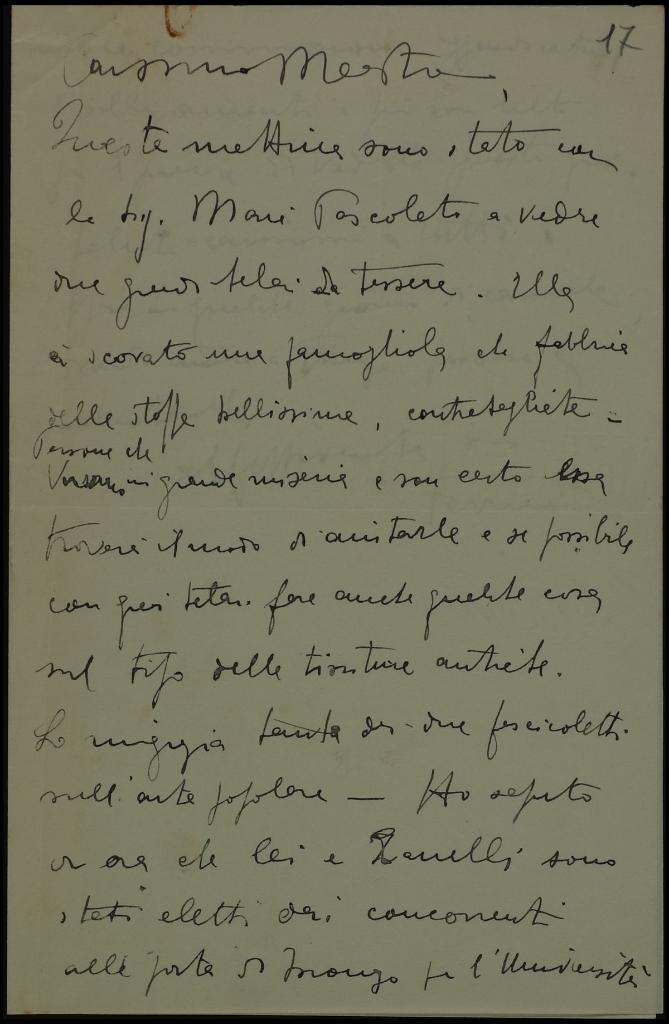 17
Carissimo Maestro,
Questa mattina sono stato con
la Sig. Mari Pascolato a vedere
due grandi telai da tessere. Ella
à scovato una famigliola che fabbrica
delle stoffe bellissime, contadinesche –
Persone che
vivono in grande miseria e son certo Essa
troverà il modo di aiutarle e se possibile
con quei telai fare anche qualche cosa
sul tipo delle tessiture antiche.
La ringrazia tanto dei due fascicoletti
sull'arte popolare — Ho saputo
or ora che lei e Zanelli sono
stati eletti dai concorrenti
alla porta di bronzo per l'Università